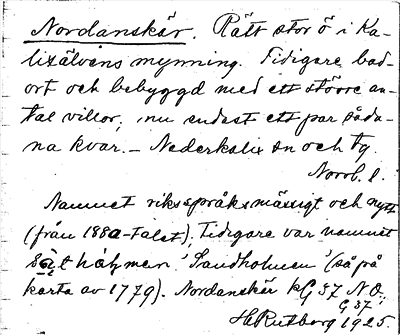 Nordanskär. Rätt stor ö i Ka-
lixälvens mynning. Tidigare bad-
ort och bebyggd med ett större an-
tal villor, nu endast ett par såda-
na kvar. – Nederkalix sn och tg.
Norrb. l.
Namnet riksspråksmässigt och nytt
(från 1880-talet). Tidigare var namnet
'Sandholmen' (så på
karta av 1779). Nordanskär kG 37 N.Ö.;
G 37
1925.